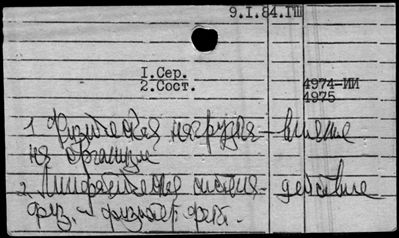 9.I.84.ГШ
I.Сер.
2.Сост.
4974-ИИ
4975
1 Физическая нагрузка - влияние
на организм
2. Лимфатическая система - действие
физ. - факт.